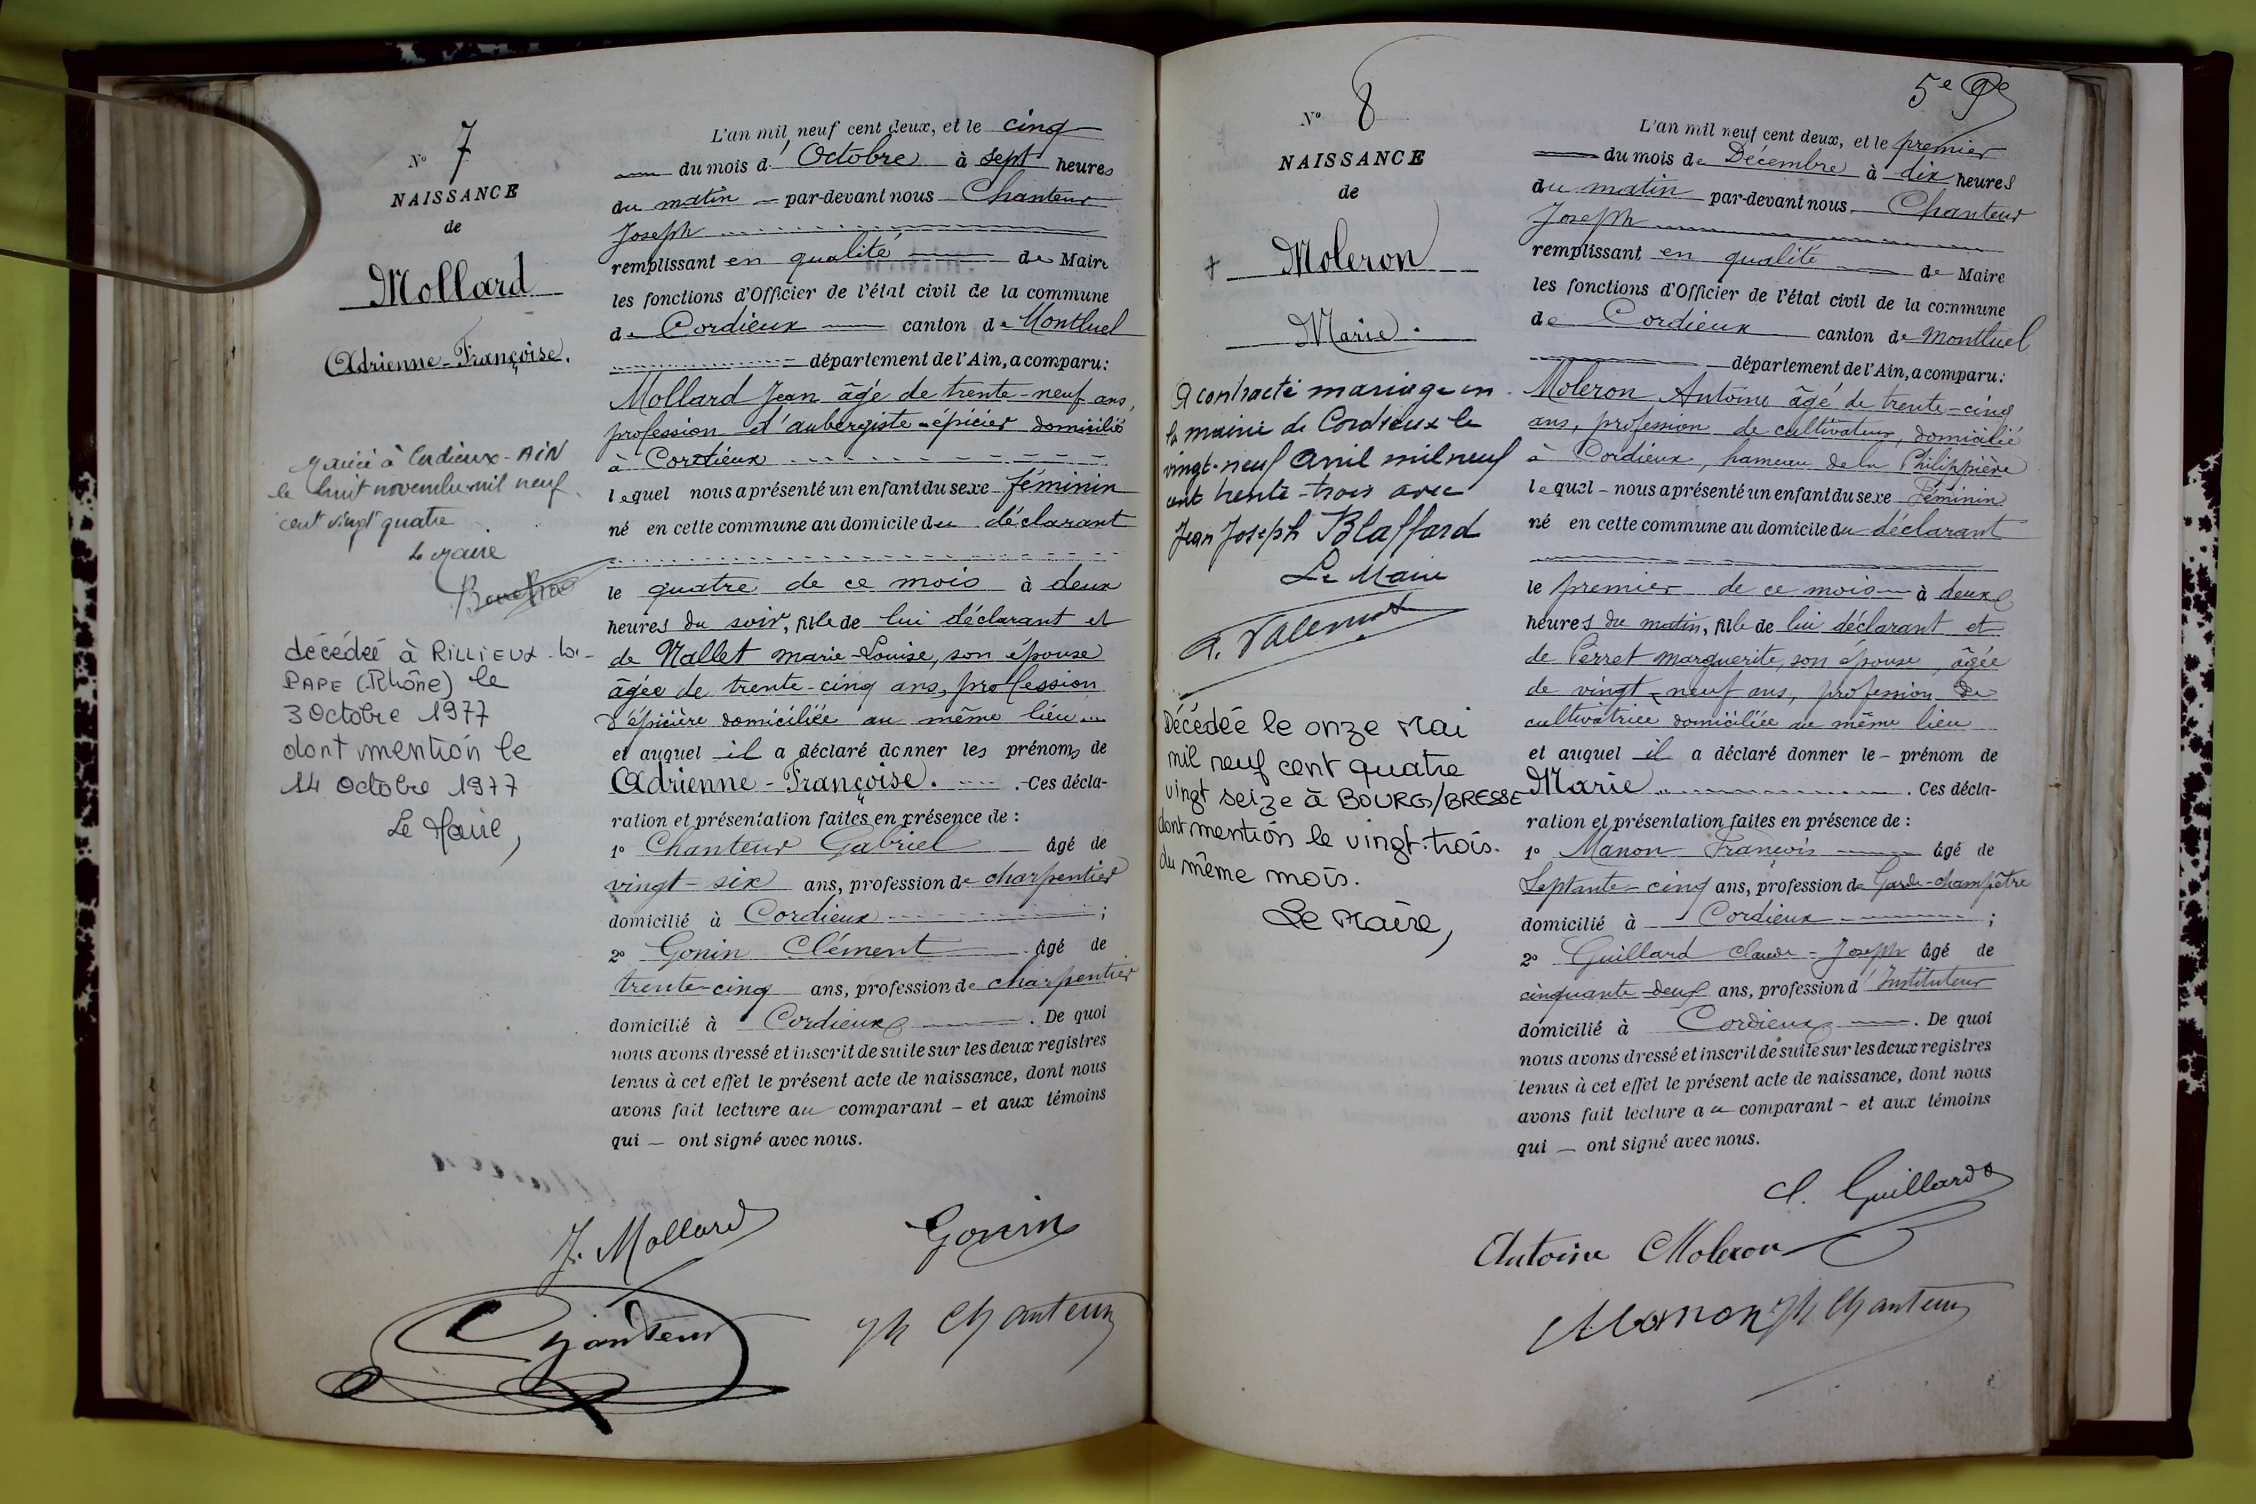 N° 7
NAISSANCE
de
Mollard
Adrienne-Françoise.
Mariée à Cordieux-AIN
le huit novembre mil neuf
cent vingt quatre
Le Maire
décédée à RILLIEUX-la-
PAPE (Rhône) le
3 Octobre 1977
dont mention le
14 Octobre 1977
Le Maire,
L'an mil neuf cent deux, et le cinq
du mois d'Octobre à sept heures
du matin par-devant nous Chanteur
Joseph
remplissant en qualité de Maire
les fonctions d'Officier de l'état civil de la commune
de Cordieux canton de Montluel
département de l'Ain, a comparu:
Mollard Jean âgé de trente-neuf ans,
profession d'aubergiste-épicier domicilié
à Cordieux
lequel nous a présenté un enfant du sexe féminin
né en cette commune au domicile du déclarant
le quatre de ce mois à deux
heures du soir, fille de lui déclarant et
de Nallet Marie-Louise, son épouse
âgée de trente-cinq ans, profession
d'épicière domiciliée au même lieu
et auquel il a déclaré donner les prénoms de
Adrienne-Françoise. Ces décla-
ration et présentation faites en présence de :
1° Chanteur Gabriel âgé de
vingt-six ans, profession de charpentier
domicilié à Cordieux ;
2° Gonin Clément âgé de
trente-cinq ans, profession de charpentier
domicilié à Cordieux. De quoi
nous avons dressé et inscrit de suite sur les deux registres
tenus à cet effet le présent acte de naissance, dont nous
avons fait lecture au comparant – et aux témoins
qui — ont signé avec nous.
J. Mollard
Gonin
Chanteur
Jh Chanteur
5e Pe
N° 8
NAISSANCE
de
+ Moleron
Marie.
A contracté mariage en
la mairie de Cordieux le
vingt-neuf Avril mil neuf
cent trente-trois avec
Jean Joseph Blaffard
Le Maire
Décédée le onze Mai
mil neuf cent quatre
vingt seize à BOURG/BRESSE
dont mention le vingt-trois
du même mois.
Le Maire,
L'an mil neuf cent deux, et le premier
du mois de Décembre à dix heures
du matin par-devant nous Chanteur
Joseph
remplissant en qualité de Maire
les fonctions d'Officier de l'état civil de la commune
de Cordieux canton de Montluel
département de l'Ain, a comparu:
Moleron Antoine âgé de trente-cinq
ans, profession de cultivateur, domicilié
à Cordieux, hameau de la Philippière
lequel – nous a présenté un enfant du sexe Féminin
né en cette commune au domicile du déclarant
le premier de ce mois à deux
heures du matin, fille de lui déclarant et
de Perret Marguerite, son épouse, âgée
de vingt-neuf ans, profession de
cultivatrice domiciliée au même lieu
et auquel il a déclaré donner le – prénom de
Marie. Ces décla-
ration et présentation faites en présence de :
1° Manon François âgé de
Septante-cinq ans, profession de Garde-champêtre
domicilié à Cordieux ;
2° Guillard Claude-Joseph âgé de
cinquante-deux ans, profession d'Instituteur
domicilié à Cordieux. De quoi
nous avons dressé et inscrit de suite sur les deux registres
tenus à cet effet le présent acte de naissance, dont nous
avons fait lecture au comparant – et aux témoins
qui — ont signé avec nous.
C. Guillard
Antoine Moleron
Manon Jh Chanteur